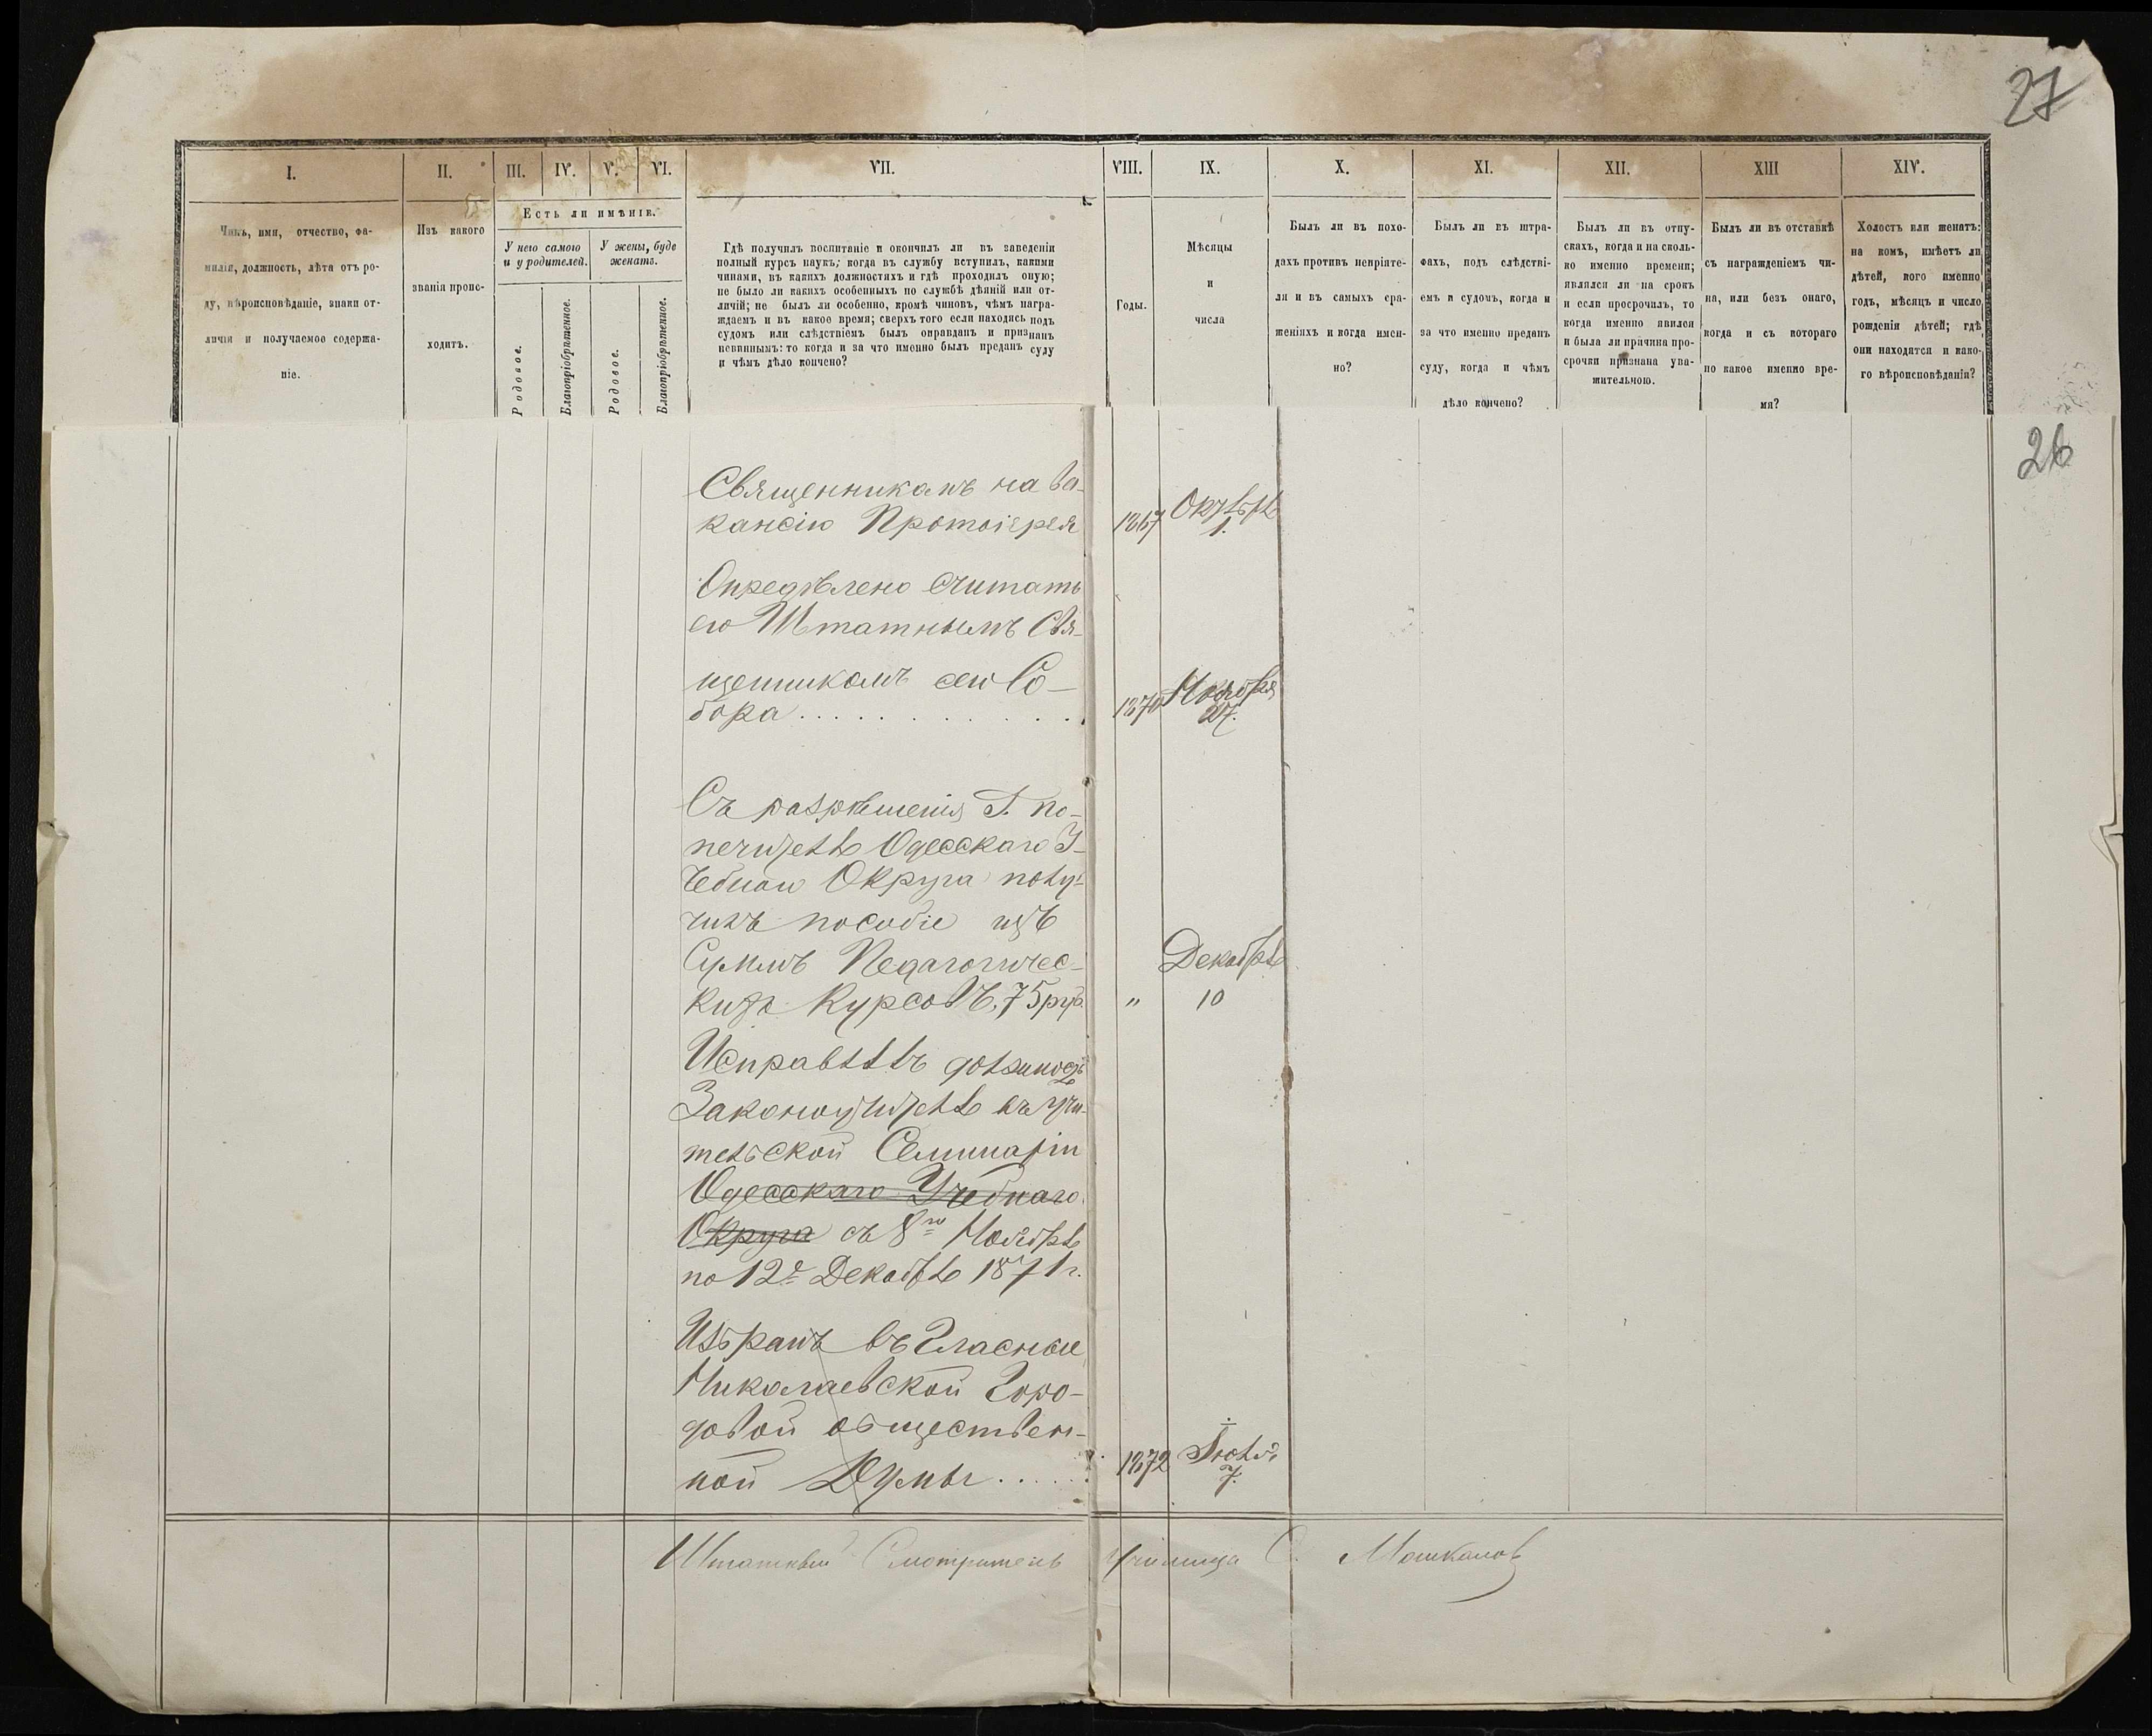 27
I.
II.
III.
IV.
V.
VI.
VII.
VIII.
IX.
X.
XI.
XII.
XIII
XIV.
Чинъ, имя, отчество, фа-
милія, должность, лѣта отъ ро-
ду, вѣроисповѣданіе, знаки от-
личія и получаемое содержа-
ніе.
Изъ какого
званія проис-
ходитъ.
Есть ли имѣніе.
У него самого
и у родителей.
У жены, буде
женатъ.
Родовое.
Благопріобрѣтенное.
Родовое.
Благопріобрѣтенное.
Гдѣ получилъ воспитаніе и окончилъ ли въ заведеніи
полный курсъ наукъ; когда въ службу вступилъ, какими
чинами, въ какихъ должностяхъ и гдѣ проходилъ оную;
не было ли какихъ особенныхъ по службѣ дѣяній или от-
личій; не былъ ли особенно, кромѣ чиновъ, чѣмъ награ-
ждаемъ и въ какое время; сверхъ того если находясь подъ
судомъ или слѣдствіемъ былъ оправданъ и признанъ
невиннымъ: то когда и за что именно былъ преданъ суду
и чѣмъ дѣло кончено?
Годы.
Мѣсяцы
и
числа
Былъ ли въ похо-
дахъ противъ непріяте-
ля и въ самыхъ сра-
женіяхъ и когда имен-
но?
Былъ ли въ штра-
фахъ, подъ слѣдстві-
емъ и судомъ, когда и
за что именно преданъ
суду, когда и чѣмъ
дѣло кончено?
Былъ ли въ отпу-
скахъ, когда и на сколь-
ко именно времени;
являлся ли на срокъ
и если просрочилъ, то
когда именно явился
и была ли причина про-
срочки признана ува-
жительною.
Былъ ли въ отставкѣ
съ награжденіемъ чи-
на, или безъ онаго,
когда и съ котораго
по какое именно вре-
мя?
Холостъ или женатъ:
на комъ, имѣетъ ли
дѣтей, кого именно
годъ, мѣсяцъ и число
рожденія дѣтей; гдѣ
они находятся и како-
го вѣроисповѣданія?
26
Священникамъ на ва-
кансію Протоіерея
1867
Октября
1.
Опредѣлено считать
его Штатнымъ Свя-
щенникомъ сего Со-
бора . . . . . . . . . . . .
1870
Ноября
27.
Съ разрѣшенія Г. по-
печителя Одесскаго У-
чебнаго Округа полу-
чилъ пособіе изъ
Суммъ Педагогичес-
кихъ Курсовъ, 75 руб.
"
Декабря
10
Исправлялъ должность
Законоучителя въ учи-
тельской Семинаріи
Одесскаго Учебнаго
Округа съ 8го Ноября
по 12е Декабря 1871 г.
Избранъ въ Гласные
Николаевской Горо-
довой обществен-
ной Думы . . . . .
1872
Іюля
7.
Штатный Смотритель училища С. Машкановъ